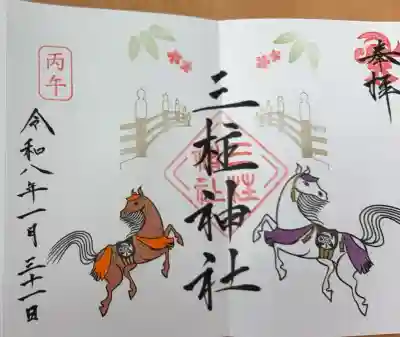 奉拝
三柱神社
三柱
神社
丙午
令和八年一月三十一日